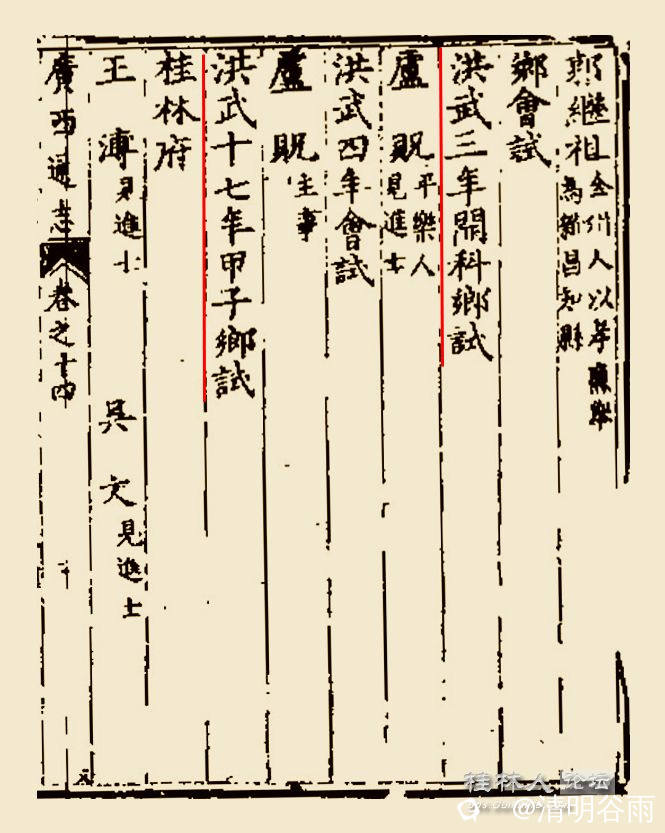 郭繼祖全州人以孝廉舉為新昌知縣
鄉會試
洪武三年開科鄉試
盧貺平樂人見進士
洪武四年會試
盧貺主事
洪武十七年甲子鄉試
桂林府
王溥見進士 吳文見進士
廣西通志 卷之十四
桂林人论坛
@清明谷雨